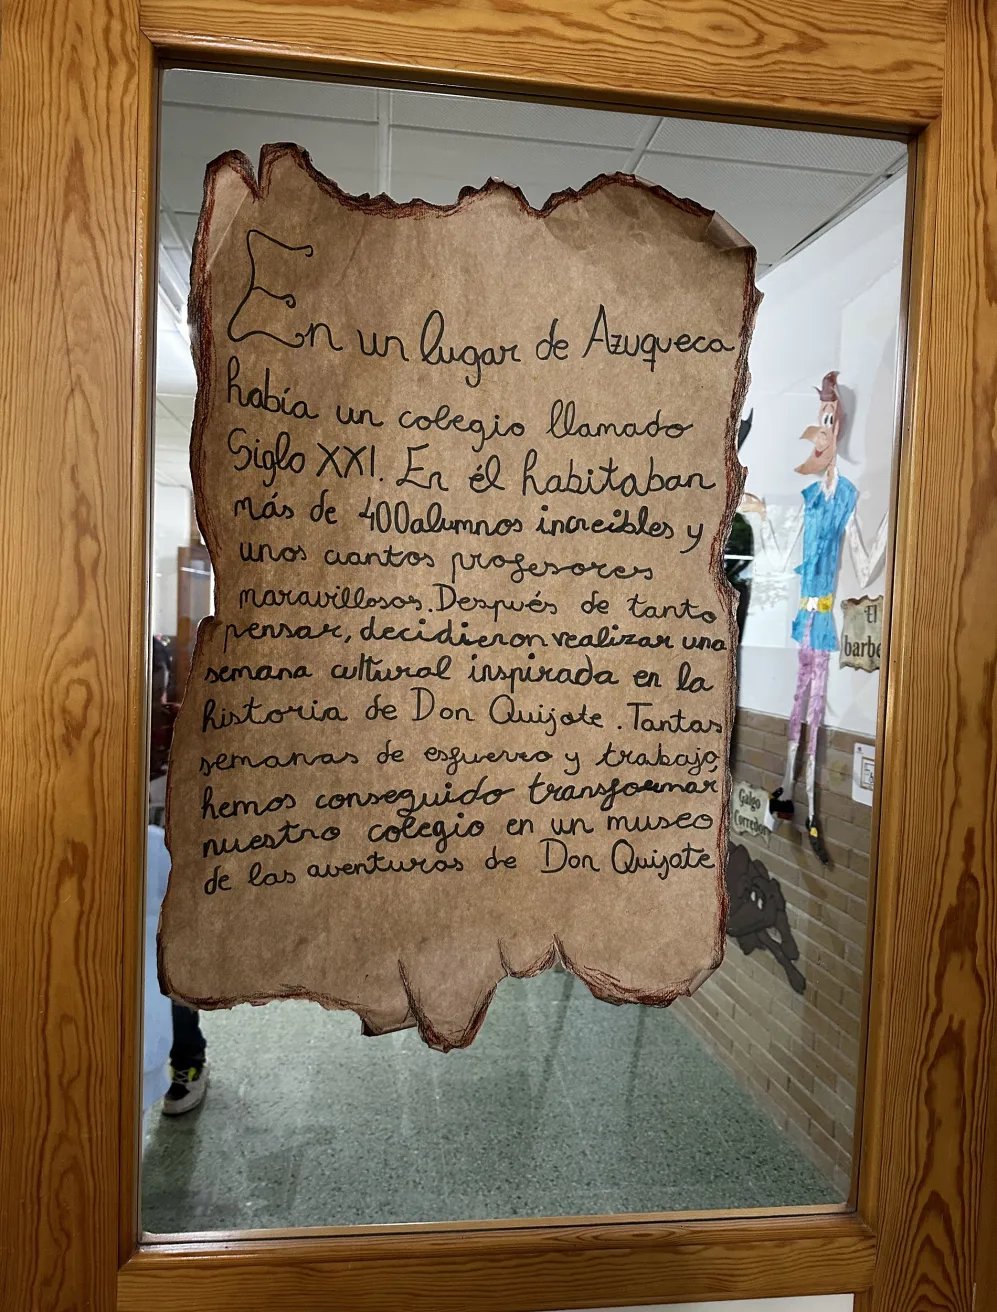 En un lugar de Azuqueca
había un colegio llamado
Siglo XXI. En él habitaban
más de 400alumnos increibles y
unos cuantos profesores
maravillosos. Después de tanto
pensar, decidieron realizar una
semana cultural inspirada en la
historia de Don Quijote. Tantas
semanas de esfuerzo y trabajo,
hemos conseguido transformar
nuestro colegio en un museo
de las aventuras de Don Quijote
El
barbe
Galgo
Corredor